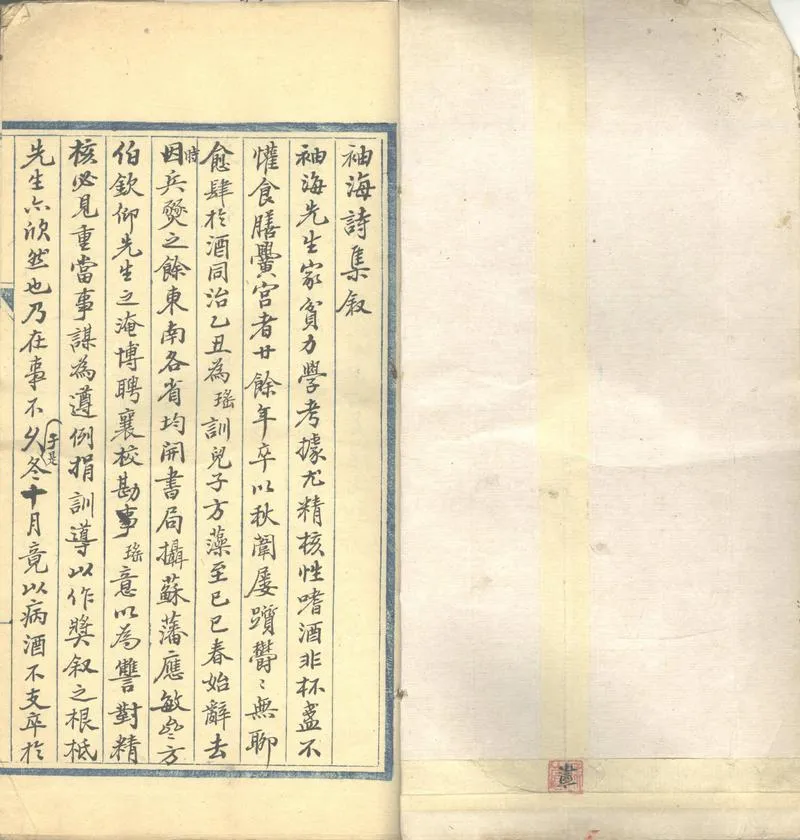 袖海詩集叙
袖海先生家貧力學考據尤精核性嗜酒非杯盞不
懽食膳黌宮者廿餘年卒以秋闈屡躓鬱〻無聊
愈肆於酒同治乙丑為瑤訓兒子方藻至己巳春始辭去
時因兵燹之餘東南各省均開書局攝蘇藩應敏齋方
伯欽仰先生之淹博聘襄校勘事瑤意以為讐對精
核必見重當事謀為遵例捐訓導以作奬叙之根柢
先生亦欣然也乃在事不久于是冬十月竟以病酒不支卒於